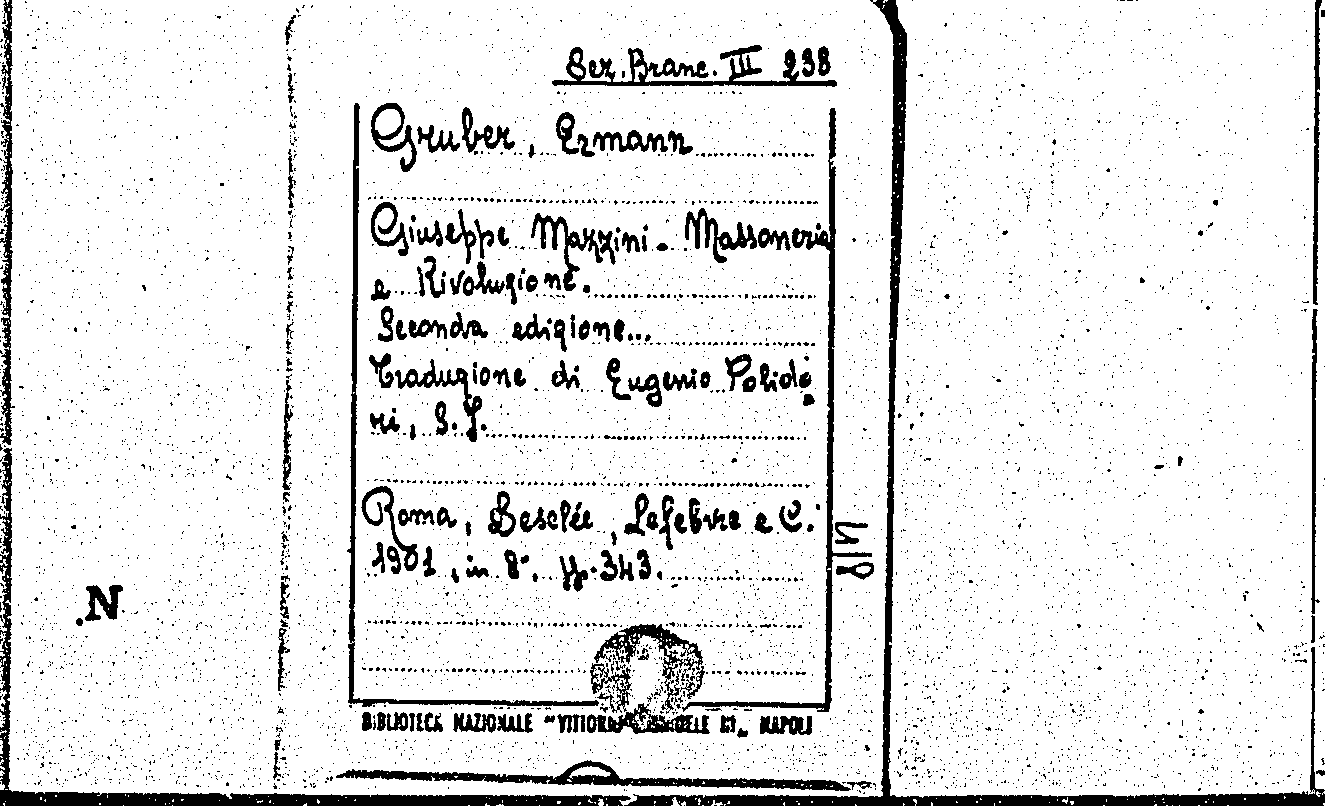 Sez. Branc. III 238
Gruber, Ermann
Giuseppe Mazzini. Massoneria
e Rivoluzione.
Seconda edizione...
Traduzione di Eugenio Polido
ri, S. J.
Roma, Desclée, Lefebvre e C.
1901, in 8°, pp. 343.
BIBLIOTECA NAZIONALE "VITTORIO EMANUELE III" NAPOLI
.N